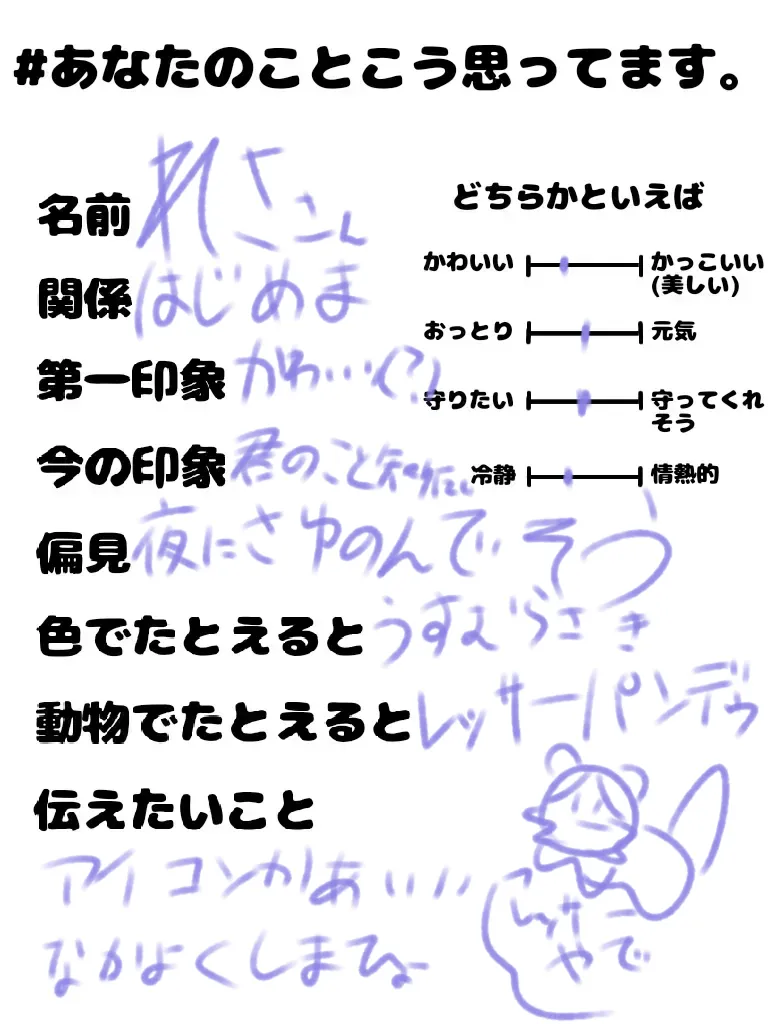 #あなたのことこう思ってます。
名前 れささん
関係 はじめま
第一印象 かわ…(?)
今の印象 君のこと知りたい
偏見 夜にさゆのんでそう
色でたとえると うすむらさき
動物でたとえると レッサーパンデゥ
伝えたいこと
アイコンかあいい
なかよくしまひょー
レッサー
やで
どちらかといえば
かわいい かっこいい
(美しい)
おっとり 元気
守りたい 守ってくれ
そう
冷静 情熱的